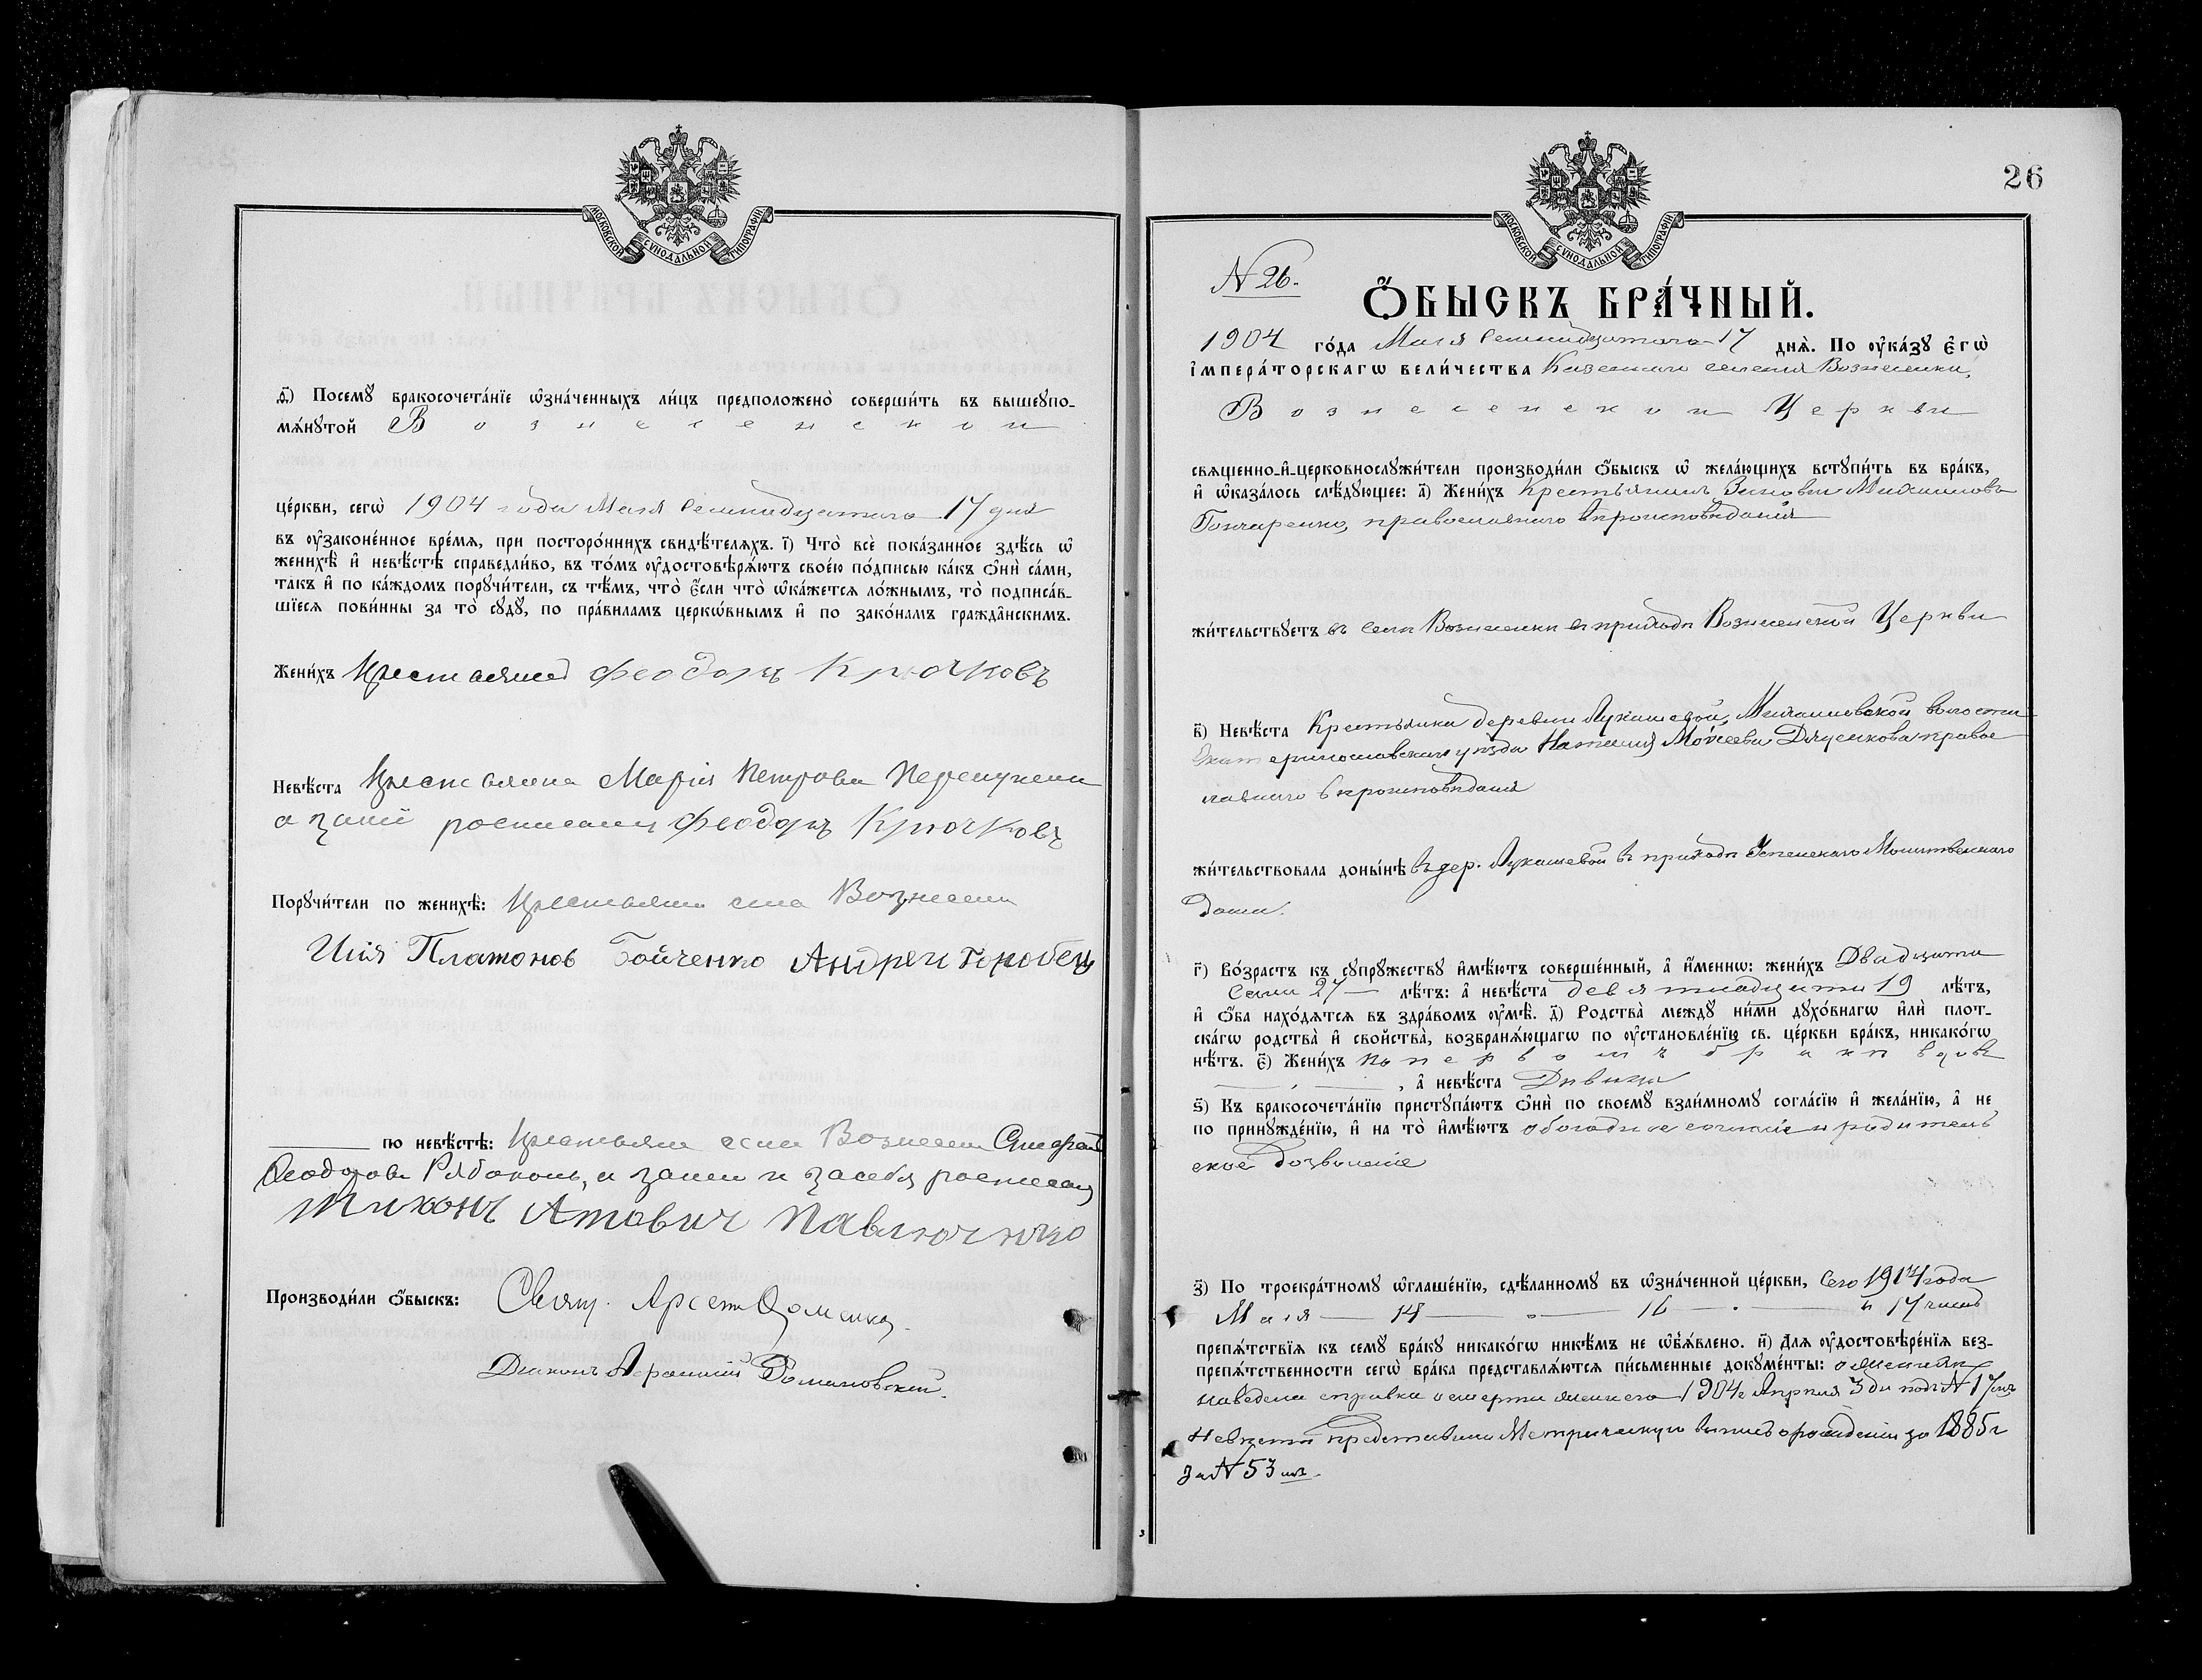 МОСКОВСКОЙ СѴНОДАЛЬНОЙ ТИПОГРАФІИ
д҃і) Посемꙋ̀ бракосочета́нїе ѡ҆зна́ченныхъ ли́цъ предположено̀ соверши́ть въ вышеꙋпо-
мѧ́нꙋтой Вознесенской
це́ркви, сегѡ̀ 1904 года Мая Семнадцатаго 17 дня
въ ᲂу҆законе́нное вре́мѧ, при посторо́ннихъ свидѣ́телѧхъ. і҃) Что̀ всѐ пока́занное здѣ́сь ѡ҆
женихѣ̀ и҆ невѣ́стѣ справедли́во, въ то́мъ ᲂу҆достовѣрѧ́ютъ свое́ю по́дписью ка́къ ѻ҆нѝ са́ми,
та́къ и҆ по ка́ждомъ порꙋчи́тели, съ тѣ́мъ, что̀ є҆́сли что̀ ѡ҆ка́жетсѧ ло́жнымъ, то̀ подписа́в-
шїесѧ пови́нны за то̀ сꙋдꙋ̀, по пра́виламъ церкѡ́внымъ и҆ по зако́намъ гражда̂нскимъ.
Жени́хъ Крестьянинъ Феодоръ Крючковъ
Невѣ́ста Крестьянка Марія Петрова
а за нее росписался Феодоръ Крючковъ
Порꙋчи́тели по женихѣ̀: Крестьяни села Вознесенки
Илія Платонов Бойченко Андреи Горобець
по невѣ́стѣ: Крестьяни села Вознесенки Стефанъ
Феодоровъ Рябоконь, а за него и за себя росписался
Тихонъ
Производи́ли ѻ҆́быскъ: Свящ. Арсеній
Діаконъ Романовскій.
26
МОСКОВСКОЙ СѴНОДАЛЬНОЙ ТИПОГРАФІИ
N 26.
Ѻ҆́БЫСКЪ БРА́ЧНЫЙ.
1904 го́да Мая Семнадцатаго 17 днѧ̀. По ᲂу҆ка́зꙋ є҆гѡ̀
і҆мпера́торскагѡ вели́чества Казеннаго селенія Вознесенки,
Вознесенской Церкви
свѧще́нно-и҆-церковнослꙋжи́тели производи́ли ѻ҆́быскъ ѡ҆ жела́ющихъ встꙋпи́ть въ бра́къ,
и҆ ѡ҆каза́лось слѣ́дꙋющее: а҃) Жени́хъ Крестьянинъ Зиновій Михаиловъ
Гончаренко, православнаго вѣроисповѣданія
жи́тельствꙋетъ въ селѣ Вознесенки въ приходѣ Вознесенской Церкви
в҃) Невѣ́ста Крестьянка деревни Лукашевой, Михайловской волости
Екатеринославскаго уѣзда Наталія Моисеева Дяченкова, право
славнаго вѣроисповѣданія
жи́тельствовала доны́нѣ въ дер. Лукашевой въ приходѣ Успенскаго Молитвеннаго
дома.
г҃) Во́зрастъ къ сꙋпрꙋ́жествꙋ и҆мѣ́ютъ соверше́нный, а҆ и҆́меннѡ: жени́хъ Двадцати
семи 27 лѣ́тъ: а҆ невѣ́ста девятнадцати 19 лѣ́тъ,
и҆ ѻ҆́ба нахо́дѧтсѧ въ здра́вомъ ᲂу҆мѣ̀. д҃) Родства̀ междꙋ̀ ни́ми дꙋхо́внагѡ и҆лѝ плот-
ска́гѡ родства̀ и҆ свойства̀, возбранѧ́ющагѡ по ᲂу҆становле́нїю св. це́ркви бра́къ, никако́гѡ
нѣ́тъ. є҃) Жени́хъ по первомъ бракѣ вдовъ
, а҆ невѣ́ста Дѣвица
ѕ҃) Къ бракосочета́нїю пристꙋпа́ютъ ѻ҆нѝ по своемꙋ̀ взаи́мномꙋ согла́сїю и҆ жела́нїю, а҆ не
по принꙋжде́нїю, и҆ на то̀ и҆мѣ́ютъ обоюдное согласіе и родитель
ское дозволеніе
з҃) По троекра́тномꙋ ѡ҆глаше́нїю, сдѣ́ланномꙋ въ ѡ҆зна́ченной це́ркви, сего 1904 года
Мая 14 16 и 17 числъ
препѧ́тствїѧ къ семꙋ̀ бра́кꙋ никако́гѡ никѣ́мъ не ѡ҆б̾ѧ́влено. и҃) Длѧ ᲂу҆достовѣре́нїѧ без-
препѧ́тственности сегѡ̀ бра́ка представлѧ́ютсѧ пи́сьменные докꙋме́нты: о женихѣ
наведена справка о смерти жены его 1904 г Апрѣля 3 дня подъ N 17
Невѣста представила Метрическую выпись о рожденіи за 1885 г
за N 53